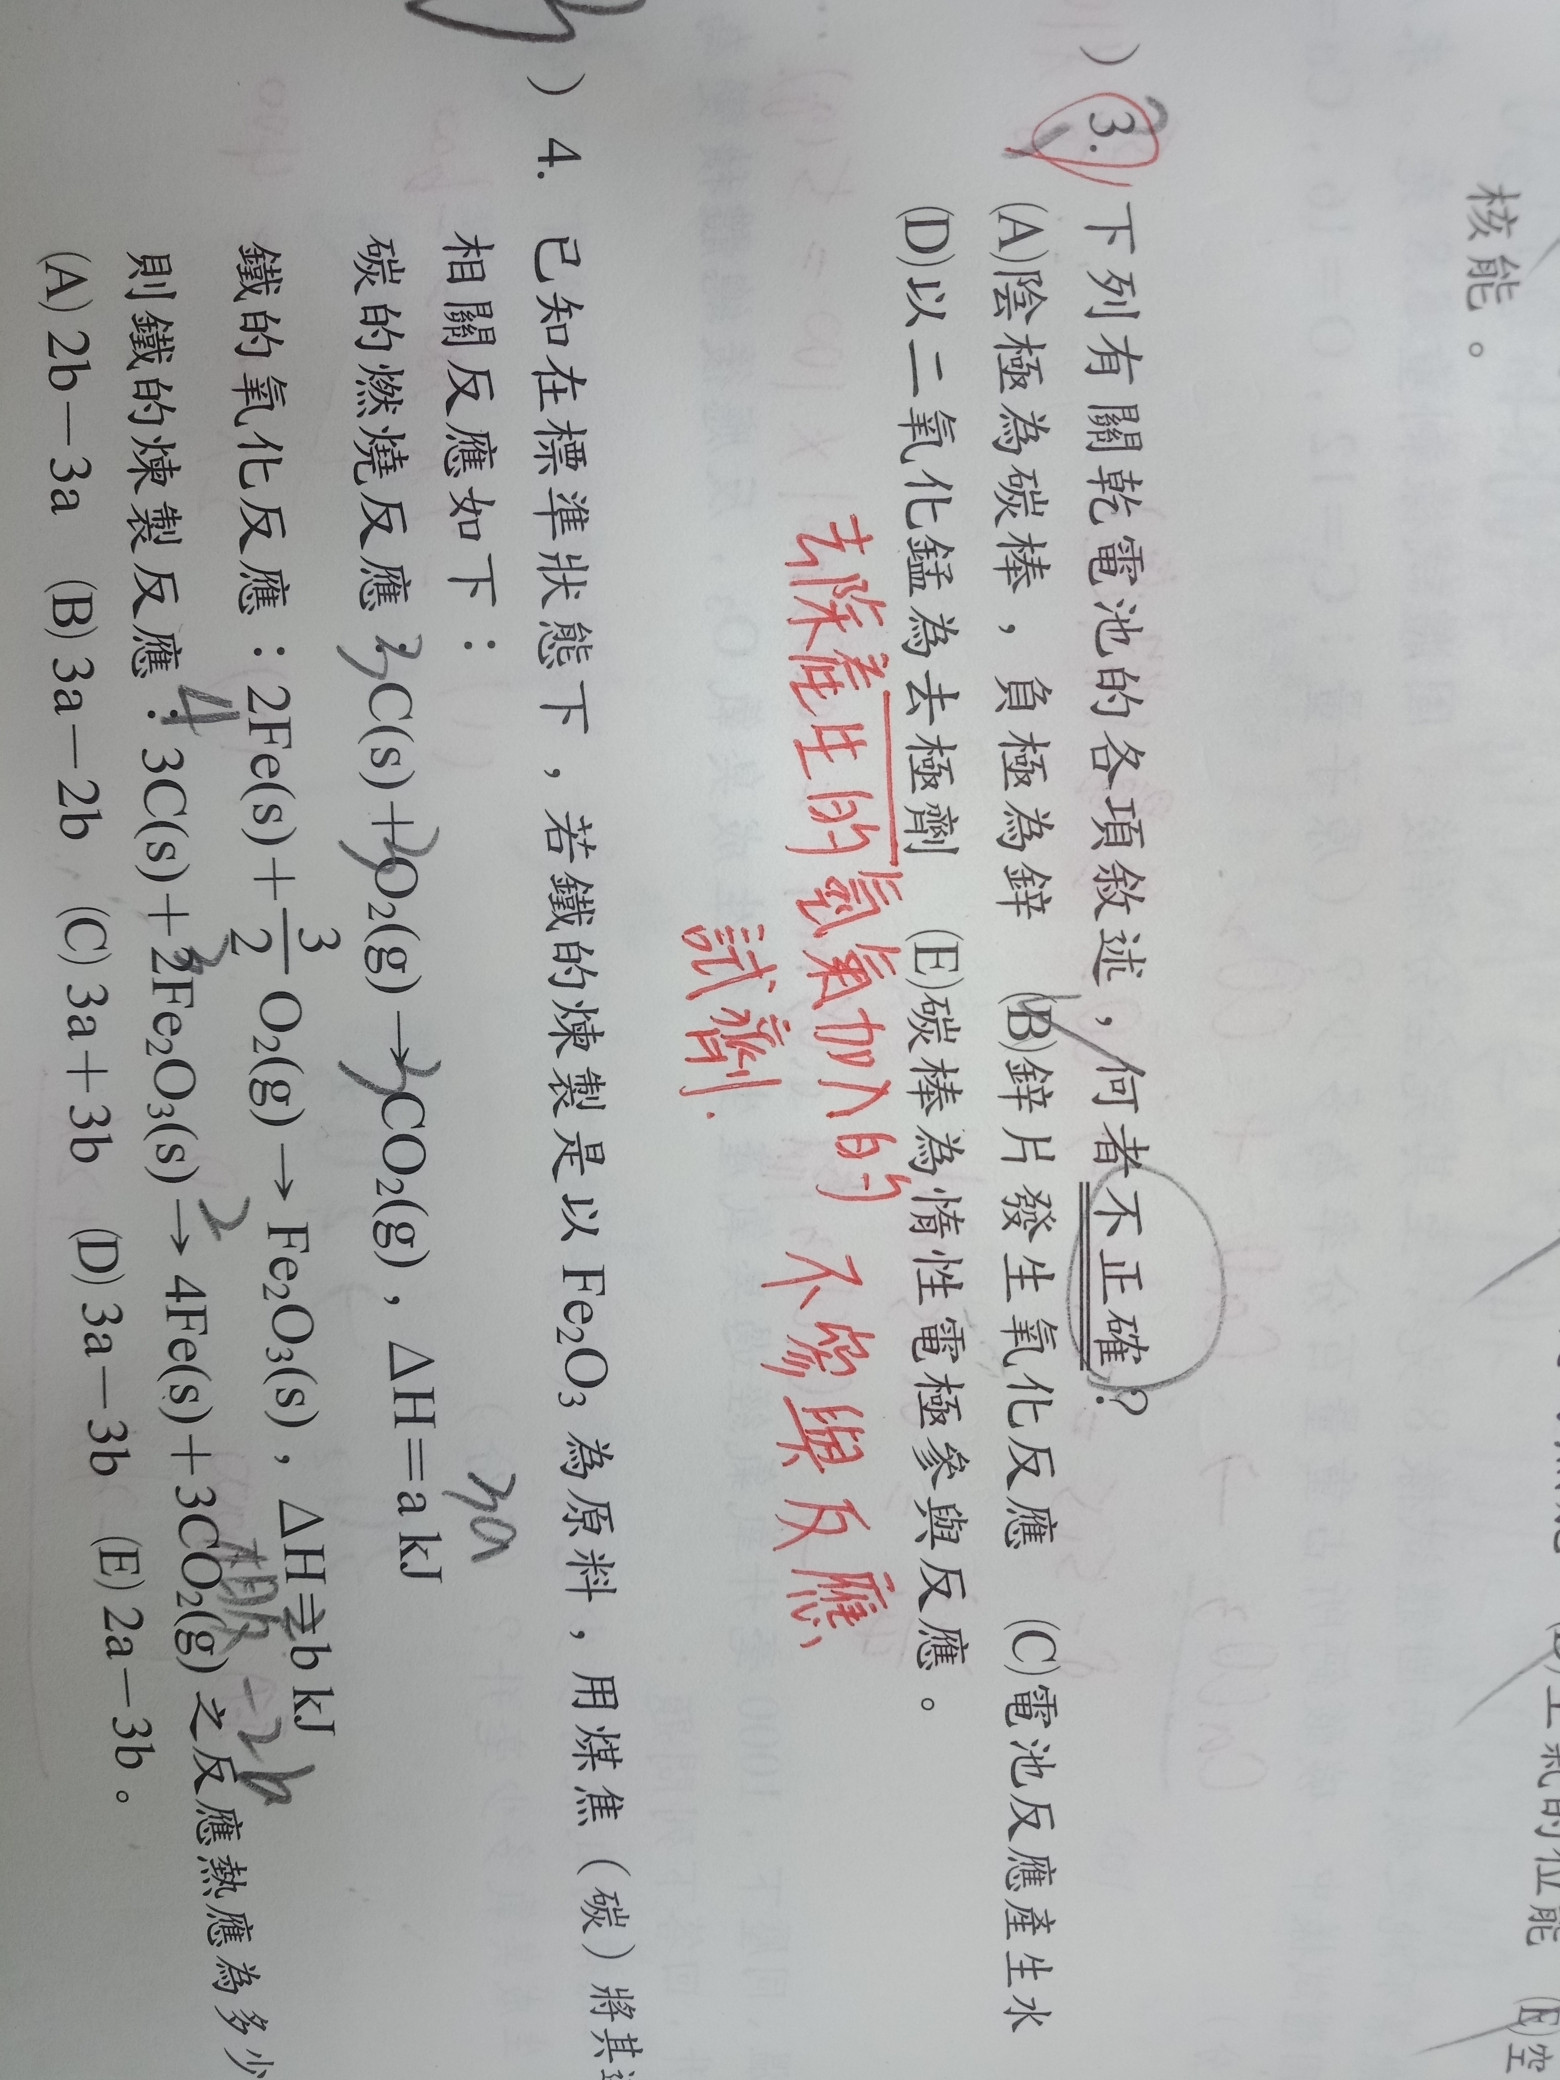 核能。
(B)
空氣的位能 (E)空
) 3. 下列有關乾電池的各項敘述，何者不正確？
(A)陰極為碳棒，負極為鋅 (B)鋅片發生氧化反應 (C)電池反應產生水
(D)以二氧化錳為去極劑 (E)碳棒為惰性電極參與反應。
去除產生的氫氣加入的 不參與反應
試劑.
) 4. 已知在標準狀態下，若鐵的煉製是以 Fe₂O₃ 為原料，用煤焦（碳）將其
相關反應如下：
3a
碳的燃燒反應：3C(s)+3O₂(g)→3CO₂(g)，ΔH=a kJ
鐵的氧化反應：2Fe(s)+3/2 O₂(g)→Fe₂O₃(s)，ΔH=b kJ
4 3 2 -2b
則鐵的煉製反應：3C(s)+2Fe₂O₃(s)→4Fe(s)+3CO₂(g) 之反應熱應為多少
(A) 2b－3a (B) 3a－2b (C) 3a＋3b (D) 3a－3b (E) 2a－3b。